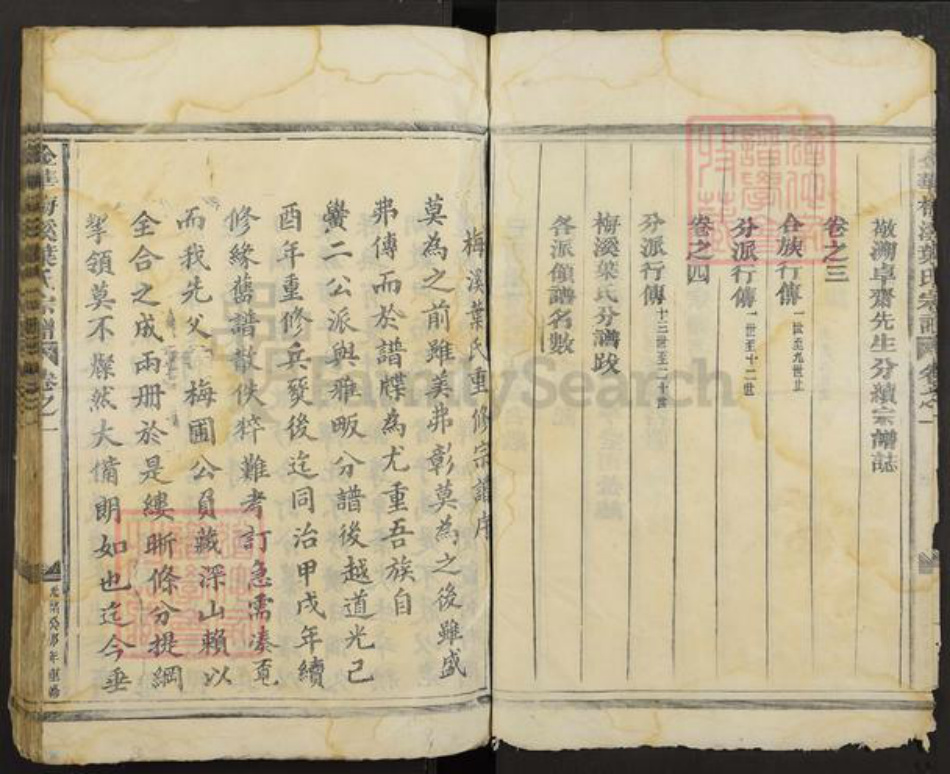 敬溯卓齋先生分續宗譜誌
卷之三
合族行傳 一世至九世止
分派行傳 一世至十二世
卷之四
分派行傳 十三世至二十世
梅溪葉氏分譜跋
各派領譜名數
梅溪葉氏重修宗譜序
莫為之前雖美弗彰莫為之後雖盛
弗傳而於譜牒為尤重吾族自
蠻二公派與雅畈分譜後越道光己
酉年重修兵燹後迄同治甲戌年續
修緣舊譜散佚猝難考訂急需湊頁
而我先父梅圃公員藏深山賴以
全合之成兩册於是縷晰條分提綱
挈領莫不燦然大備朗如也迄今垂
金華梅溪葉氏宗譜 卷之一
光緒癸卯年重脩
金華梅溪葉氏宗譜 卷之一
FamilySearch